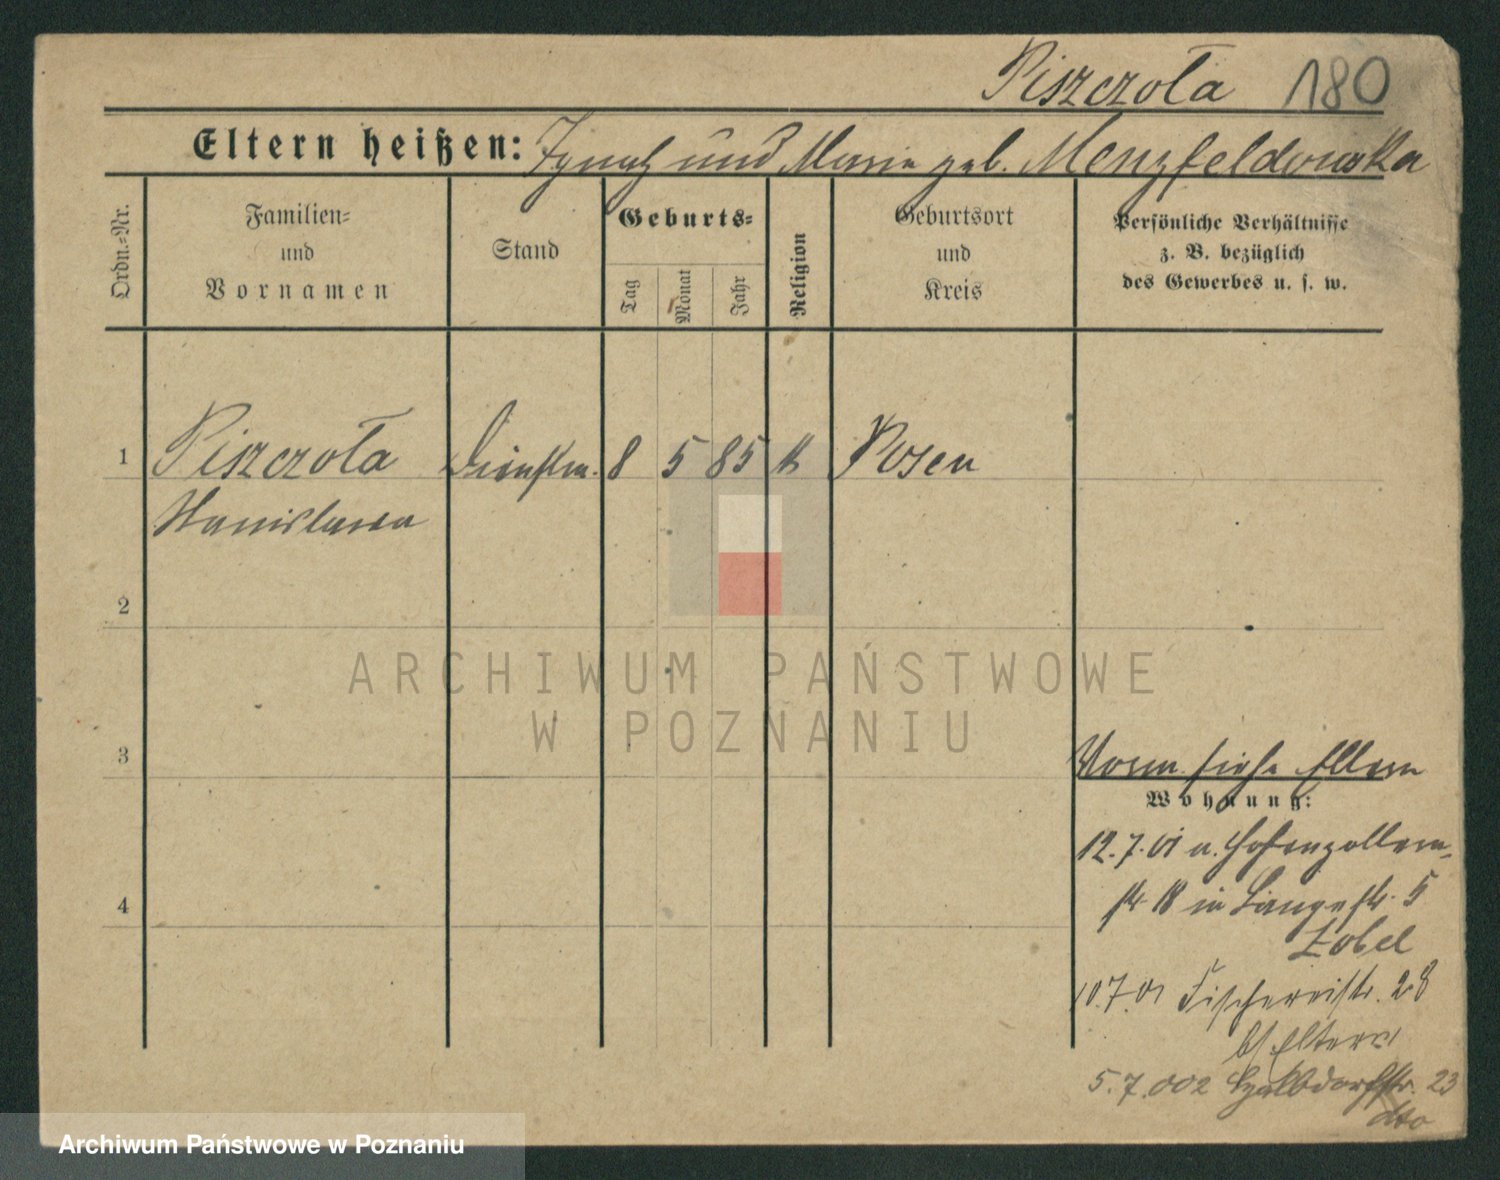 Piszczoła 180
Eltern heißen: Ignatz und Marie geb. Menzfeldowska
Ordn.=Nr.
Familien=
und
Vornamen
Stand
Geburts=
Tag
Monat
Jahr
Religion
Geburtsort
und
Kreis
Persönliche Verhältnisse
z. B. bezüglich
des Gewerbes u. s. w.
1 Piszczoła Dienstm. 8 5 85 k Posen
Stanislawa
2
ARCHIWUM PAŃSTWOWE
W POZNANIU
3
Vorm. siehe Eltern
Wohnung:
12.7.01 n. Hohenzollern-
str 18 in Langestr. 5
Zobel
10.7.01 Fischereistr. 28
b/ Eltern
4
5.7.002 Halbdorfstr. 23
dto
Archiwum Państwowe w Poznaniu